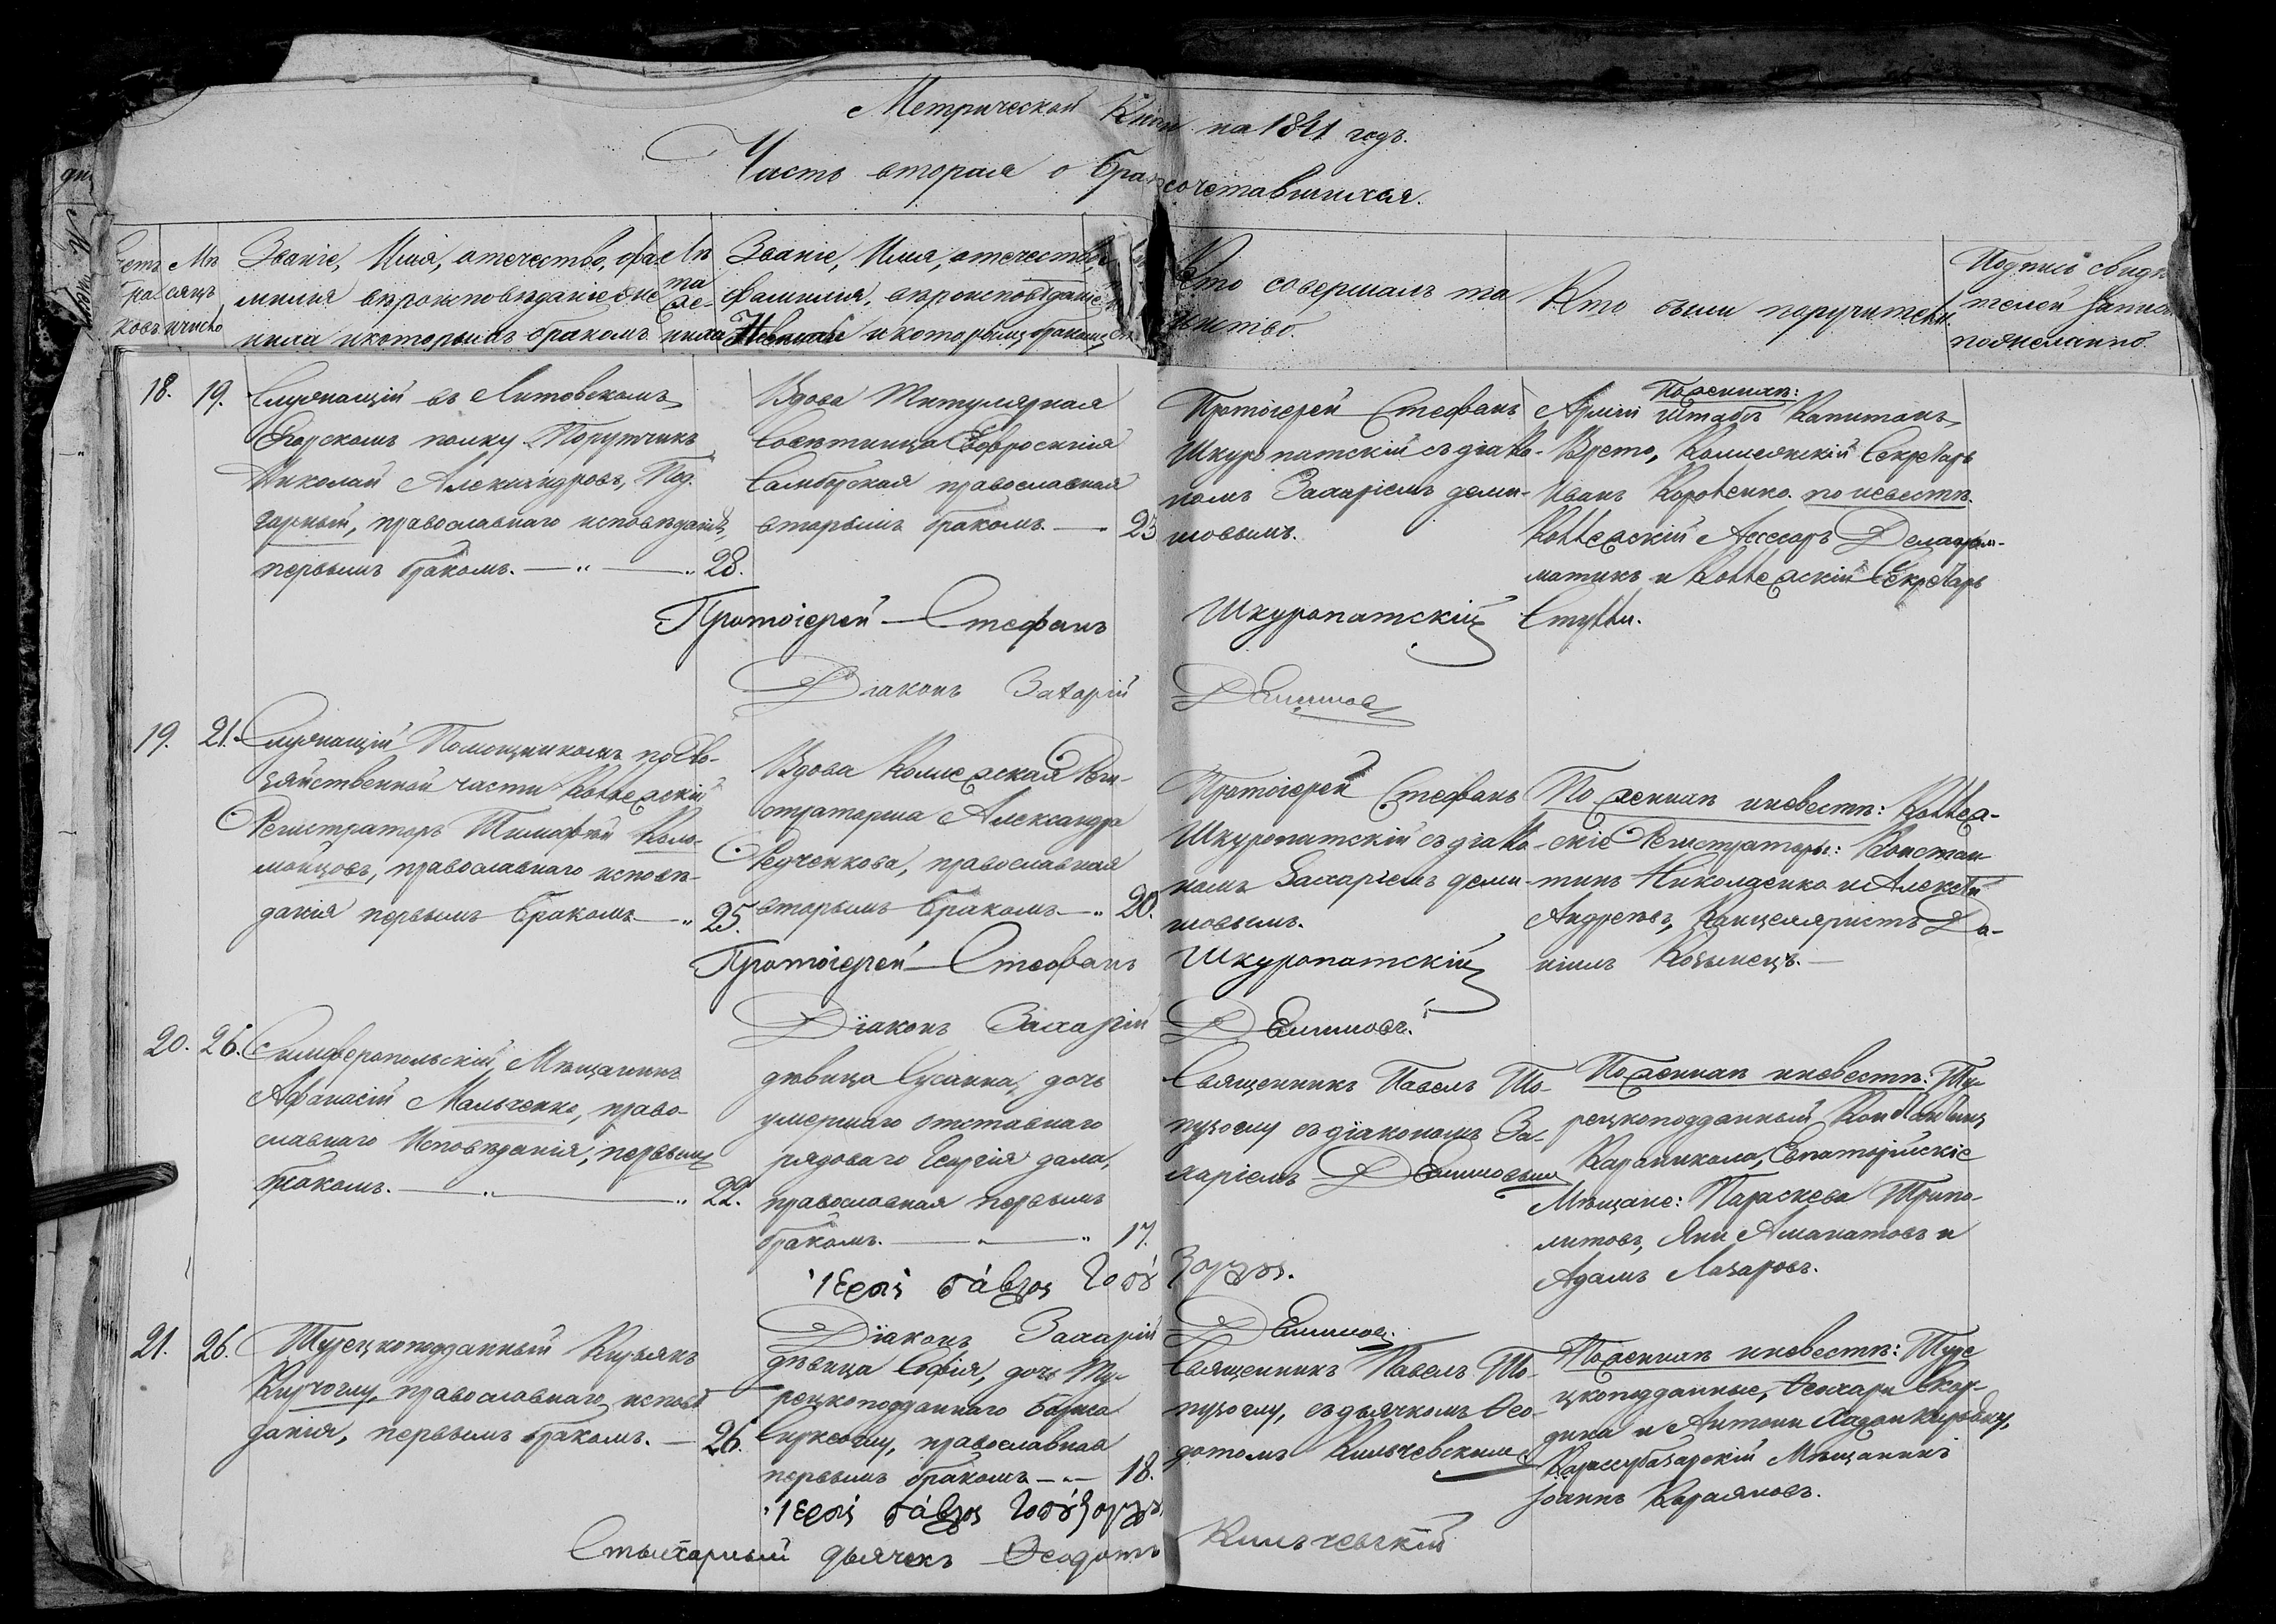 Метрической Книги на 1841 годъ.
Часть вторая о бракосочетавшихся.
Счетъ браковъ
Мѣсяцъ и число
Званіе, Имя, отечество, фамилія вѣроисповѣданіе жениха и которымъ бракомъ
Лѣта жениха
Званіе, Имя, отечество, фамилія, вѣроисповѣданіе Невѣсты и которымъ бракомъ
Кто совершалъ таинство.
Кто были поручители.
Подпись свидѣтелей записи по желанію.
18.
19.
Служащій въ Литовскомъ
Егарскомъ полку Порутчикъ
Николай Александровъ, Под-
гарный, православнаго исповѣданія,
первымъ бракомъ. — „ — „ 28.
Вдова Титулярная
Совѣтница Евфросинія
Самборская православная
вторымъ бракомъ — 23
Протоіерей Стефанъ
Шкуропатскій съ діако-
номъ Захаріемъ деми-
шовымъ.
По женихѣ:
Арміи Штабъ Капитанъ
Врето, Коллежскій Секретарь
Иванъ Коротенко. по невѣстѣ.
Коллежскій Ассесоръ Делаграм-
матикъ и Коллежскій Секретарь
Стулли.
Протоіерей Стефанъ Шкуропатскій
Діаконъ Захарій Демишов
19.
21.
Служащій Помощникомъ по Хо-
зяйственной части Коллежскій
Регистраторъ Тимофей Коло-
мойцовъ, православнаго исповѣ-
данія первымъ бракомъ — „ 25.
Вдова Коллежская Реги-
страторша Александра
Редченкова, православная
вторымъ бракомъ — „ 20.
Протоіерей Стефанъ
Шкуропатскій съ діако-
номъ Захаріемъ деми-
шовымъ.
По женихѣ и невѣстѣ: Коллеж-
скіе Регистраторы: Констан-
тинъ Николаенко и Алексѣй
Андреевъ, Канцеляристъ Да-
ніилъ Козынецъ.
Протоіерей Стефанъ Шкуропатскій
Діаконъ Захарій Демишовъ.
20.
26.
Симферопольскій Мѣщанинъ
Афанасій Мальченко, право-
славнаго Исповѣданія, первымъ
бракомъ. — „ — „ 22.
дѣвица Сусанна, дочь
умершаго отставнаго
рядоваго Георгія дала,
православная первымъ
бракомъ. — „ — „ 17.
Священникъ Павелъ То-
пузоглу съ діакономъ За-
харіемъ Демишовымъ
По женихѣ и невѣстѣ: Ту-
рецкоподданный Константинъ
Караникола, Евпаторійскіе
Мѣщане: Параскева Трипо-
литовъ, Яни Аманатовъ и
Адамъ Лазаровъ.
Ἱερεὺς πάβλος τοπούζογλους.
Діаконъ Захарій Демишов.
21.
26.
Турецкоподданный Кирьякъ
Кирчоглу, православнаго исповѣ
данія, первымъ бракомъ. — 26.
дѣвица Софія, дочь Ту-
рецкоподданнаго Бориса
Сиркеоглу, православная
первымъ бракомъ — „ — 18.
Священникъ Павелъ То-
пузоглу, съ дьячкомъ Ѳео-
дотомъ Кильчевскимъ
По женихѣ и невѣстѣ: Туре
цкоподданные, Ѳеохари Скор-
дина и Антони Хаджи кирьяку,
Карасубазарскій Мѣщанинъ
Іоаннъ Карояновъ.
Ἱερεὺς πάβλος τοπούζογλους
Стихарный дьячекъ Ѳеодотъ Кильчевскій